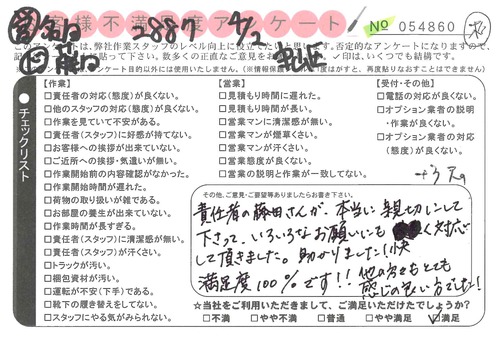 お客様不満足度アンケート
2887 4/2
No 054860
このアンケートは、弊社作業スタッフのレベル向上に役立てたいと思います。否定的なアンケートになりますので、
チェックリスト
【作業】
□責任者の対応(態度)が良くない。
□他のスタッフの対応(態度)が良くない。
□作業を見ていて不安がある。
□責任者(スタッフ)に好感が持てない。
□お客様への挨拶が出来ていない。
□ご近所への挨拶・気遣いが無い。
□作業開始前の内容確認がなかった。
□作業開始時間が遅れた。
□荷物の取り扱いが雑である。
□お部屋の養生が出来ていない。
□作業時間が長すぎる。
□責任者(スタッフ)に清潔感が無い。
□責任者(スタッフ)が汗くさい。
□トラックが汚い。
□梱包資材が汚い。
□運転が不安(下手)である。
□靴下の履き替えをしてない。
□スタッフにやる気がみられない。
【営業】
□見積もり時間に遅れた。
□見積もり時間が長い。
□営業マンに清潔感が無い。
□営業マンが煙草くさい。
□営業マンが汗くさい。
□営業態度が良くない。
□営業の説明と作業が一致してない。
【受付・その他】
□電話の対応が良くない。
□オプション業者の説明
・作業が良くない。
□オプション業者の対応
(態度)が良くない。
その他、ご意見・ご要望等ありましたらお書き下さい。
責任者の藤田さんが、本当に親切にして
下さって、いろいろなお願いにも快く対応
して頂きました。助かりました!快
満足度100%です!!他の方々もとても
感じの良い方でした!
☆当社をご利用いただきまして、ご満足いただけたでしょうか?
□不満 □やや不満 □普通 □やや満足 □満足